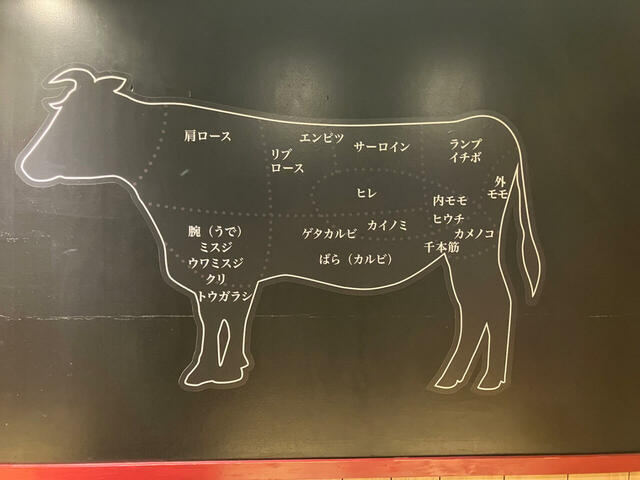 肩ロース
リブ
ロース
エンピツ
サーロイン
ランプ
イチボ
ヒレ
外
モモ
内モモ
ヒウチ
カメノコ
千本筋
腕（うで）
ミスジ
ウワミスジ
クリ
トウガラシ
ゲタカルビ
カイノミ
ばら（カルビ）